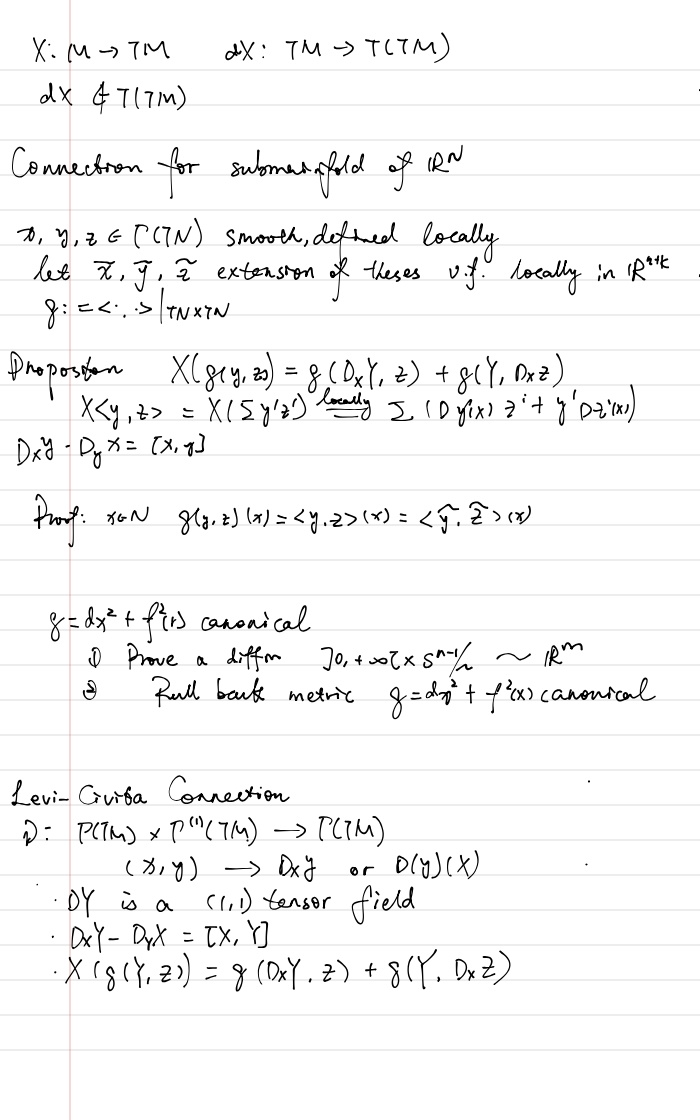 X: M → TM   dX: TM → T(TM)
dX ∉ T(TM)
Connection for submanifold of ℝᴺ
x, y, z ∈ Γ(TN) smooth, defined locally
let x̃, ỹ, z̃ extension of theses v.f. locally in ℝⁿ⁺ᵏ
g := <·,·>|TN×TN
Proposition X(g(y, z)) = g(D_xY, z) + g(Y, D_x z)
X<y, z> = X(Σ yⁱzⁱ) locally = Σ (D yⁱ(x) zⁱ + yⁱ D zⁱ(x))
D_x y - D_y x = [x, y]
Proof: x∈N g(y, z)(x) = <y, z>(x) = <ỹ, z̃>(x)
g = dx² + f²(r) canonical
① Prove a diffm ]0, +∞[ × Sⁿ⁻¹/~ ~ ℝᵐ
② Pull back metric g = dx² + f²(x) canonical
Levi-Civita Connection
D: Γ(TM) × Γ⁽¹⁾(TM) → Γ(TM)
(x, y) → D_x y or D(y)(X)
· DY is a (1,1) tensor field
· D_XY - D_YX = [X, Y]
· X(g(Y, Z)) = g(D_XY, Z) + g(Y, D_XZ)